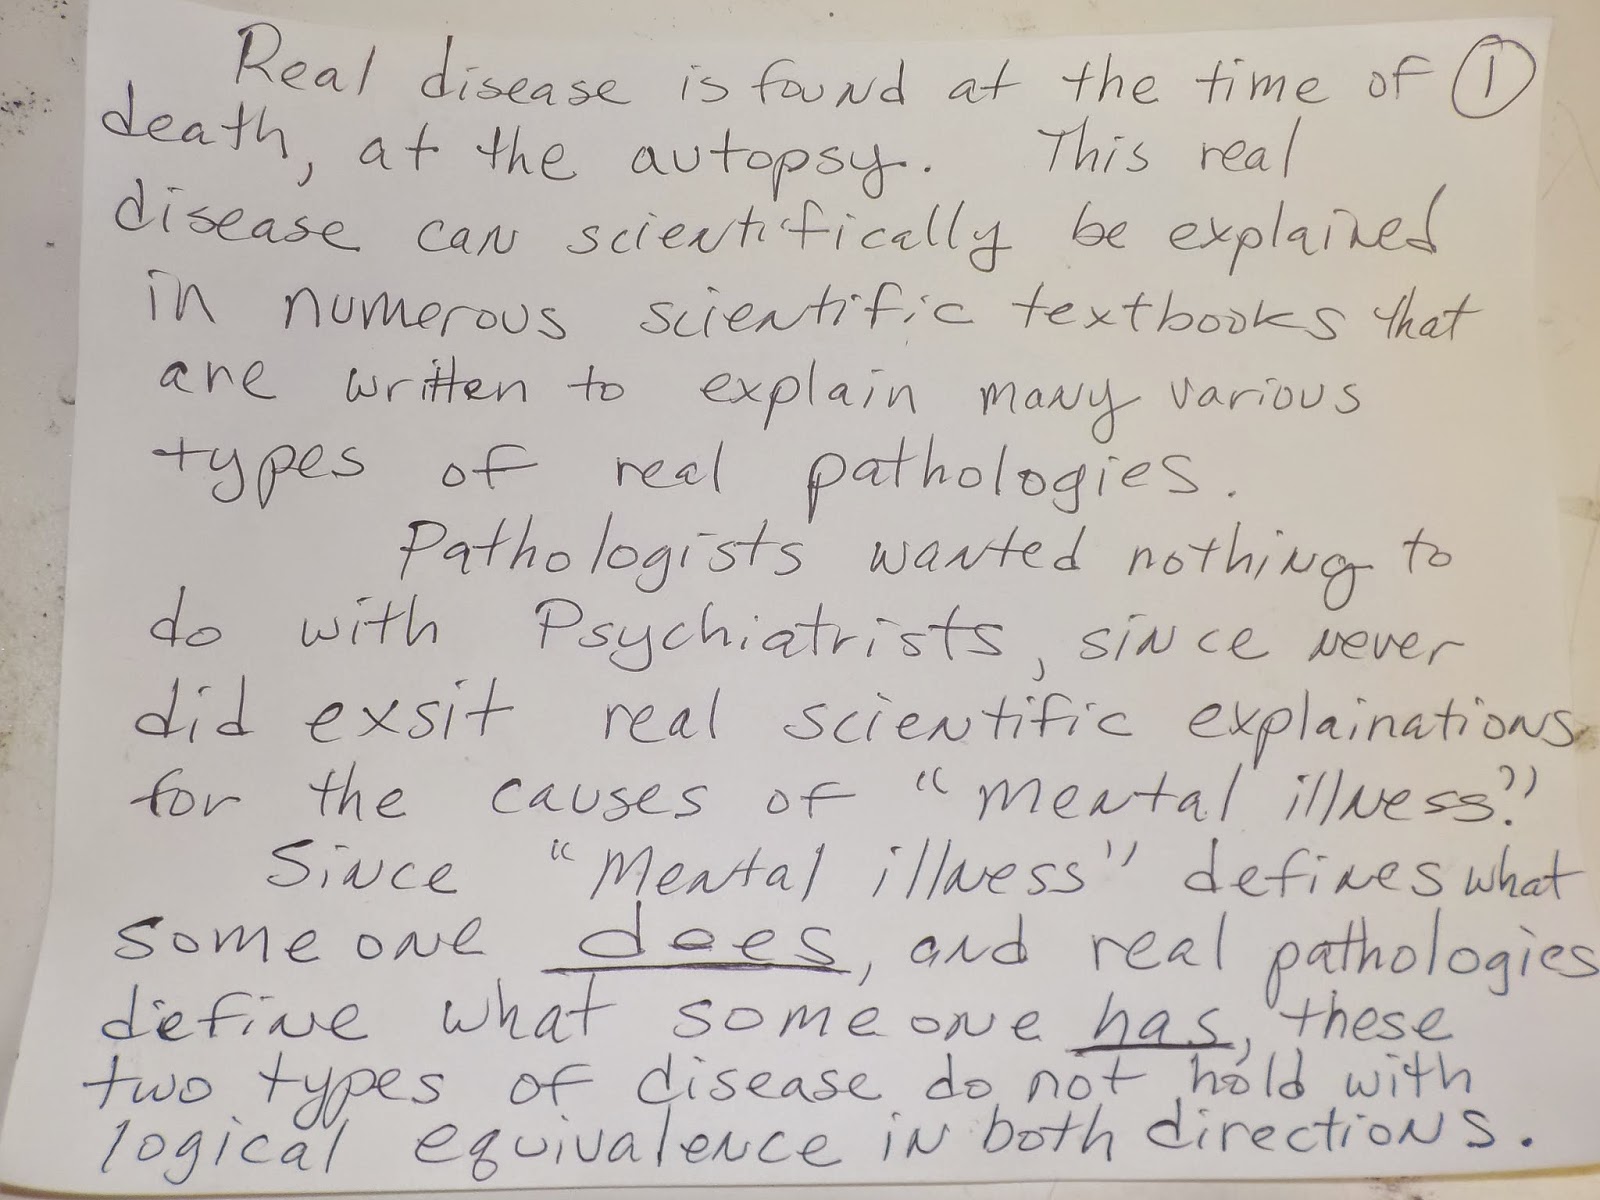 Real disease is found at the time of ①
death, at the autopsy. This real
disease can scientifically be explained
in numerous scientific textbooks that
are written to explain many various
types of real pathologies.
Pathologists wanted nothing to
do with Psychiatrists, since never
did exsit real scientific explainations
for the causes of "mental illness."
Since "Mental illness" defines what
someone does, and real pathologies
define what someone has, these
two types of disease do not hold with
logical equivalence in both directions.